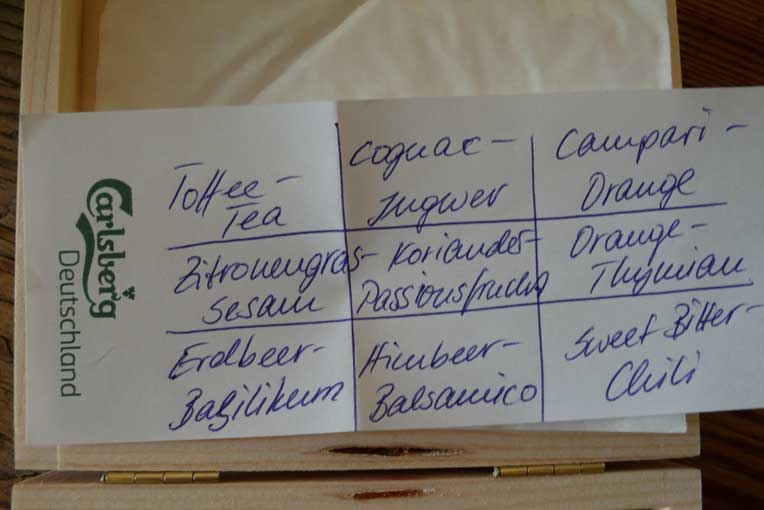 Carlsberg
Deutschland
Toffee-
Tea
Cognac-
Ingwer
Campari-
Orange
Zitronengras-
Sesam
Koriander-
Passionsfrucht
Orange-
Thymian
Erdbeer-
Basilikum
Himbeer-
Balsamico
Sweet Bitter-
Chili